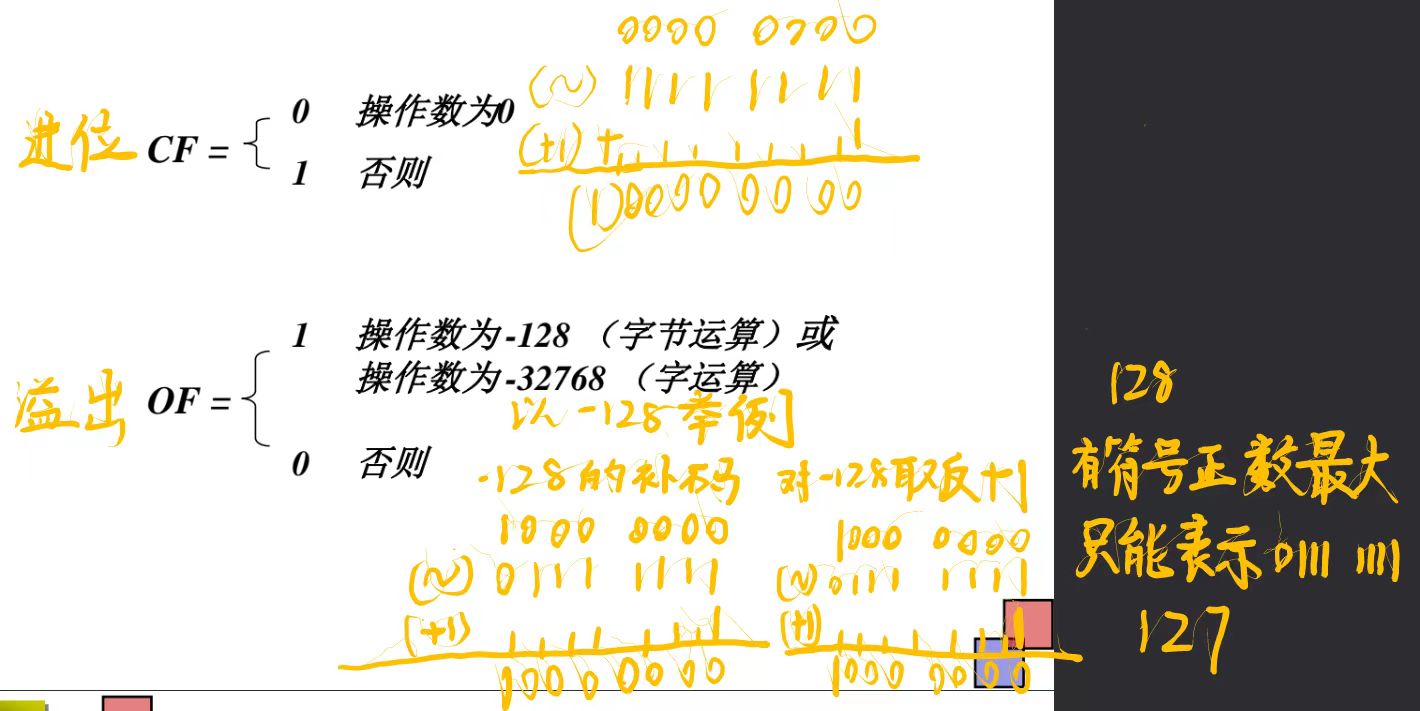 0000 0000
(~) 1111 1111
进位 CF =
0 操作数为0
1 否则
(+1) + 1
(1)0000 0000
溢出 OF =
1 操作数为-128 （字节运算）或
操作数为-32768 （字运算）
0 否则
以-128举例
-128的补码
1000 0000
(~) 0111 1111
(+1) 1
1000 0000
对-128取反+1
1000 0000
(~) 0111 1111
(+1) 1
1000 0000
128
有符号正数最大
只能表示0111 1111
127